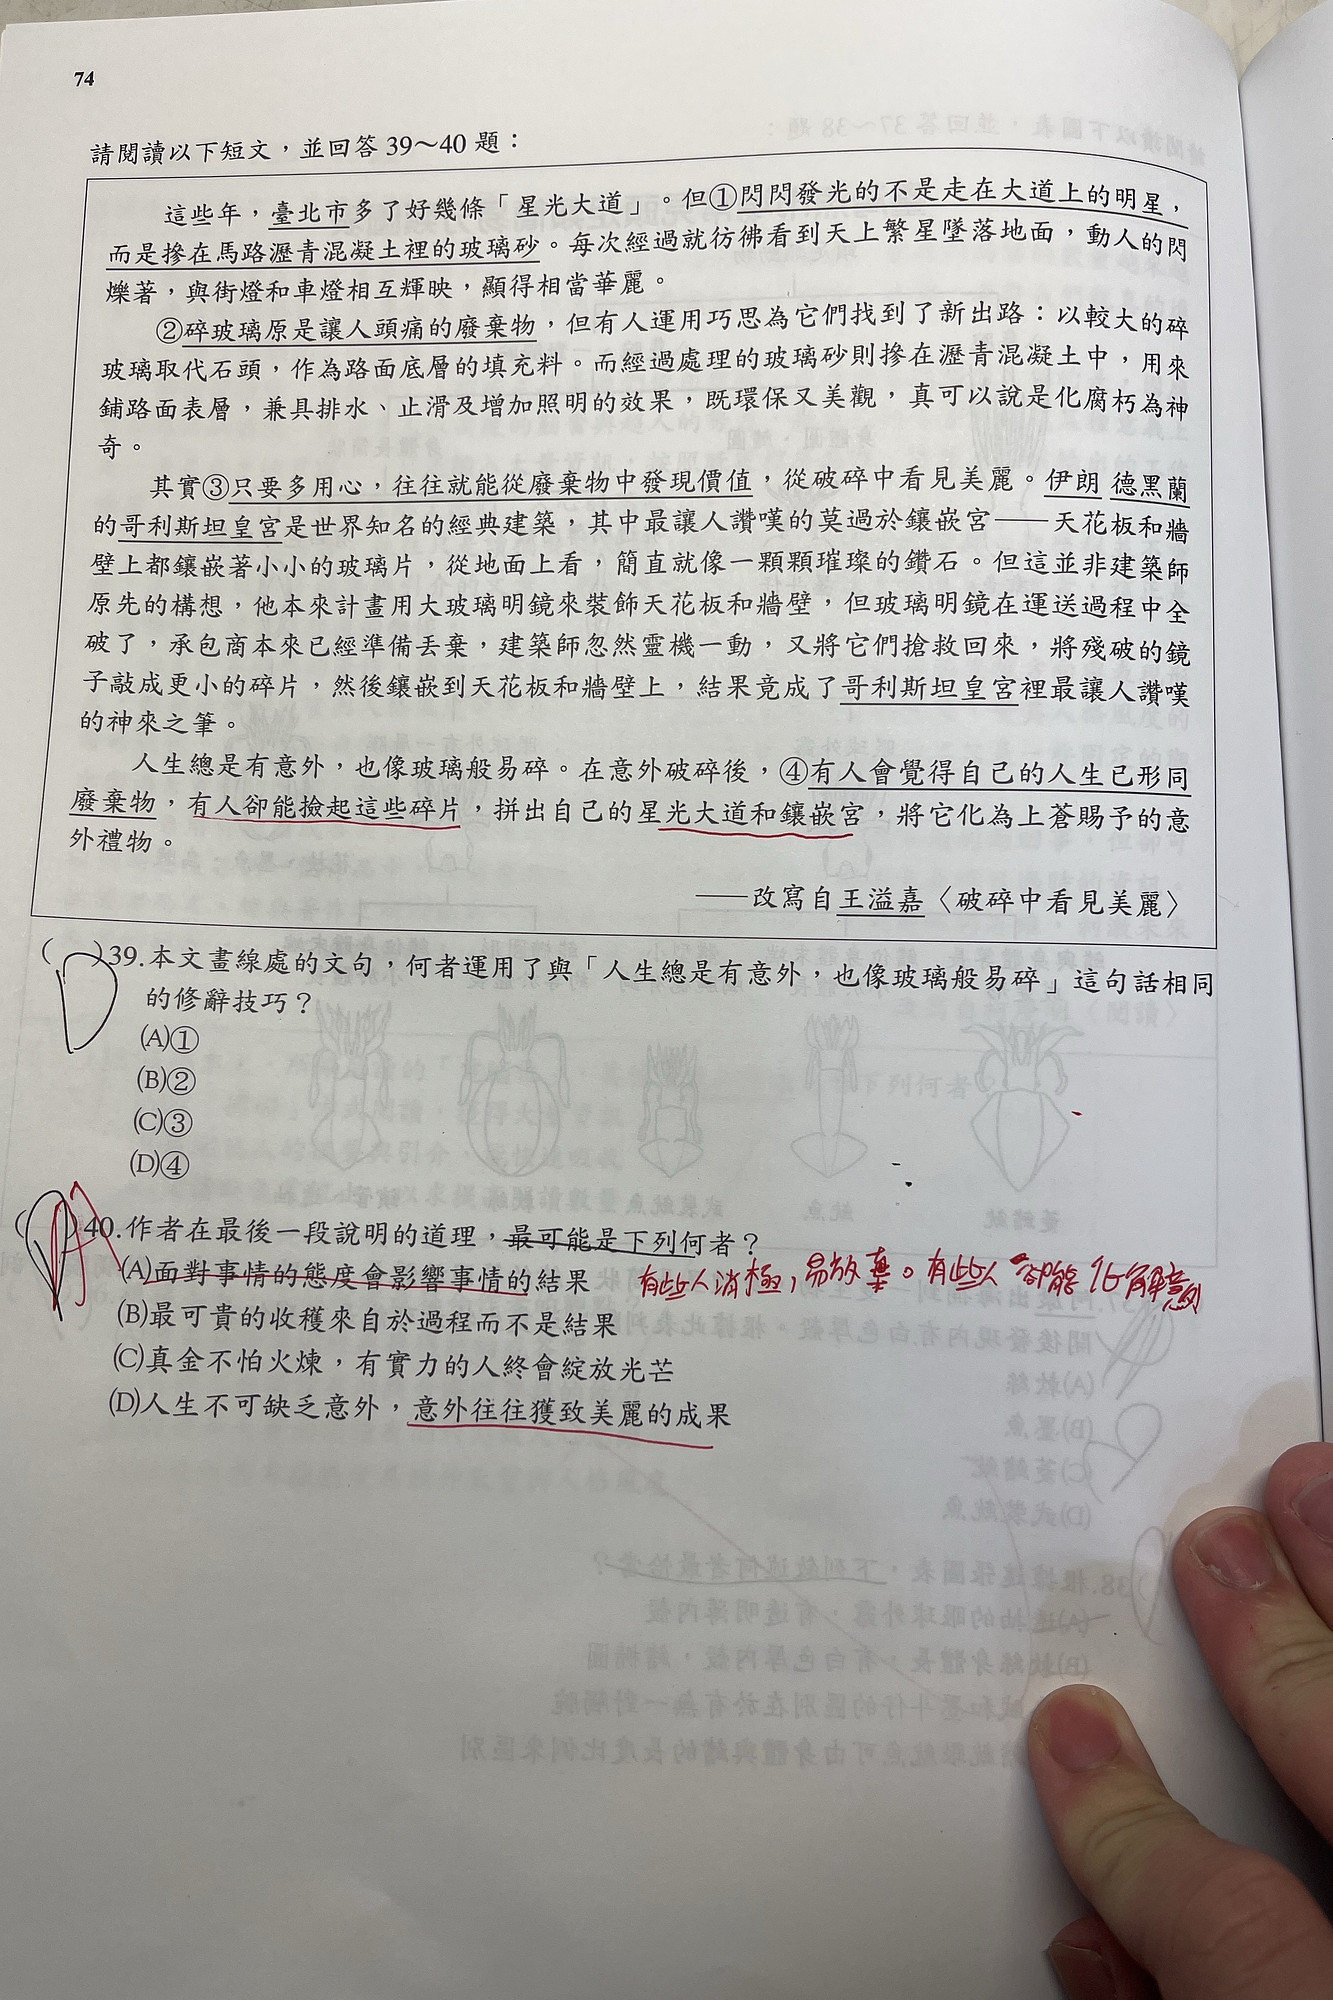 74
請閱讀以下短文，並回答 39～40 題：
這些年，臺北市多了好幾條「星光大道」。但①閃閃發光的不是走在大道上的明星，
而是摻在馬路瀝青混凝土裡的玻璃砂。每次經過就彷彿看到天上繁星墜落地面，動人的閃
爍著，與街燈和車燈相互輝映，顯得相當華麗。
②碎玻璃原是讓人頭痛的廢棄物，但有人運用巧思為它們找到了新出路：以較大的碎
玻璃取代石頭，作為路面底層的填充料。而經過處理的玻璃砂則摻在瀝青混凝土中，用來
鋪路面表層，兼具排水、止滑及增加照明的效果，既環保又美觀，真可以說是化腐朽為神
奇。
其實③只要多用心，往往就能從廢棄物中發現價值，從破碎中看見美麗。伊朗 德黑蘭
的哥利斯坦皇宮是世界知名的經典建築，其中最讓人讚嘆的莫過於鑲嵌宮——天花板和牆
壁上都鑲嵌著小小的玻璃片，從地面上看，簡直就像一顆顆璀璨的鑽石。但這並非建築師
原先的構想，他本來計畫用大玻璃明鏡來裝飾天花板和牆壁，但玻璃明鏡在運送過程中全
破了，承包商本來已經準備丟棄，建築師忽然靈機一動，又將它們搶救回來，將殘破的鏡
子敲成更小的碎片，然後鑲嵌到天花板和牆壁上，結果竟成了哥利斯坦皇宮裡最讓人讚嘆
的神來之筆。
人生總是有意外，也像玻璃般易碎。在意外破碎後，④有人會覺得自己的人生已形同
廢棄物，有人卻能撿起這些碎片，拼出自己的星光大道和鑲嵌宮，將它化為上蒼賜予的意
外禮物。
——改寫自王溢嘉〈破碎中看見美麗〉
( D )39.本文畫線處的文句，何者運用了與「人生總是有意外，也像玻璃般易碎」這句話相同
的修辭技巧？
(A)①
(B)②
(C)③
(D)④
( A )40.作者在最後一段說明的道理，最可能是下列何者？
(A)面對事情的態度會影響事情的結果 有些人消極，易放棄。有些人卻能化解意外
(B)最可貴的收穫來自於過程而不是結果
(C)真金不怕火煉，有實力的人終會綻放光芒
(D)人生不可缺乏意外，意外往往獲致美麗的成果